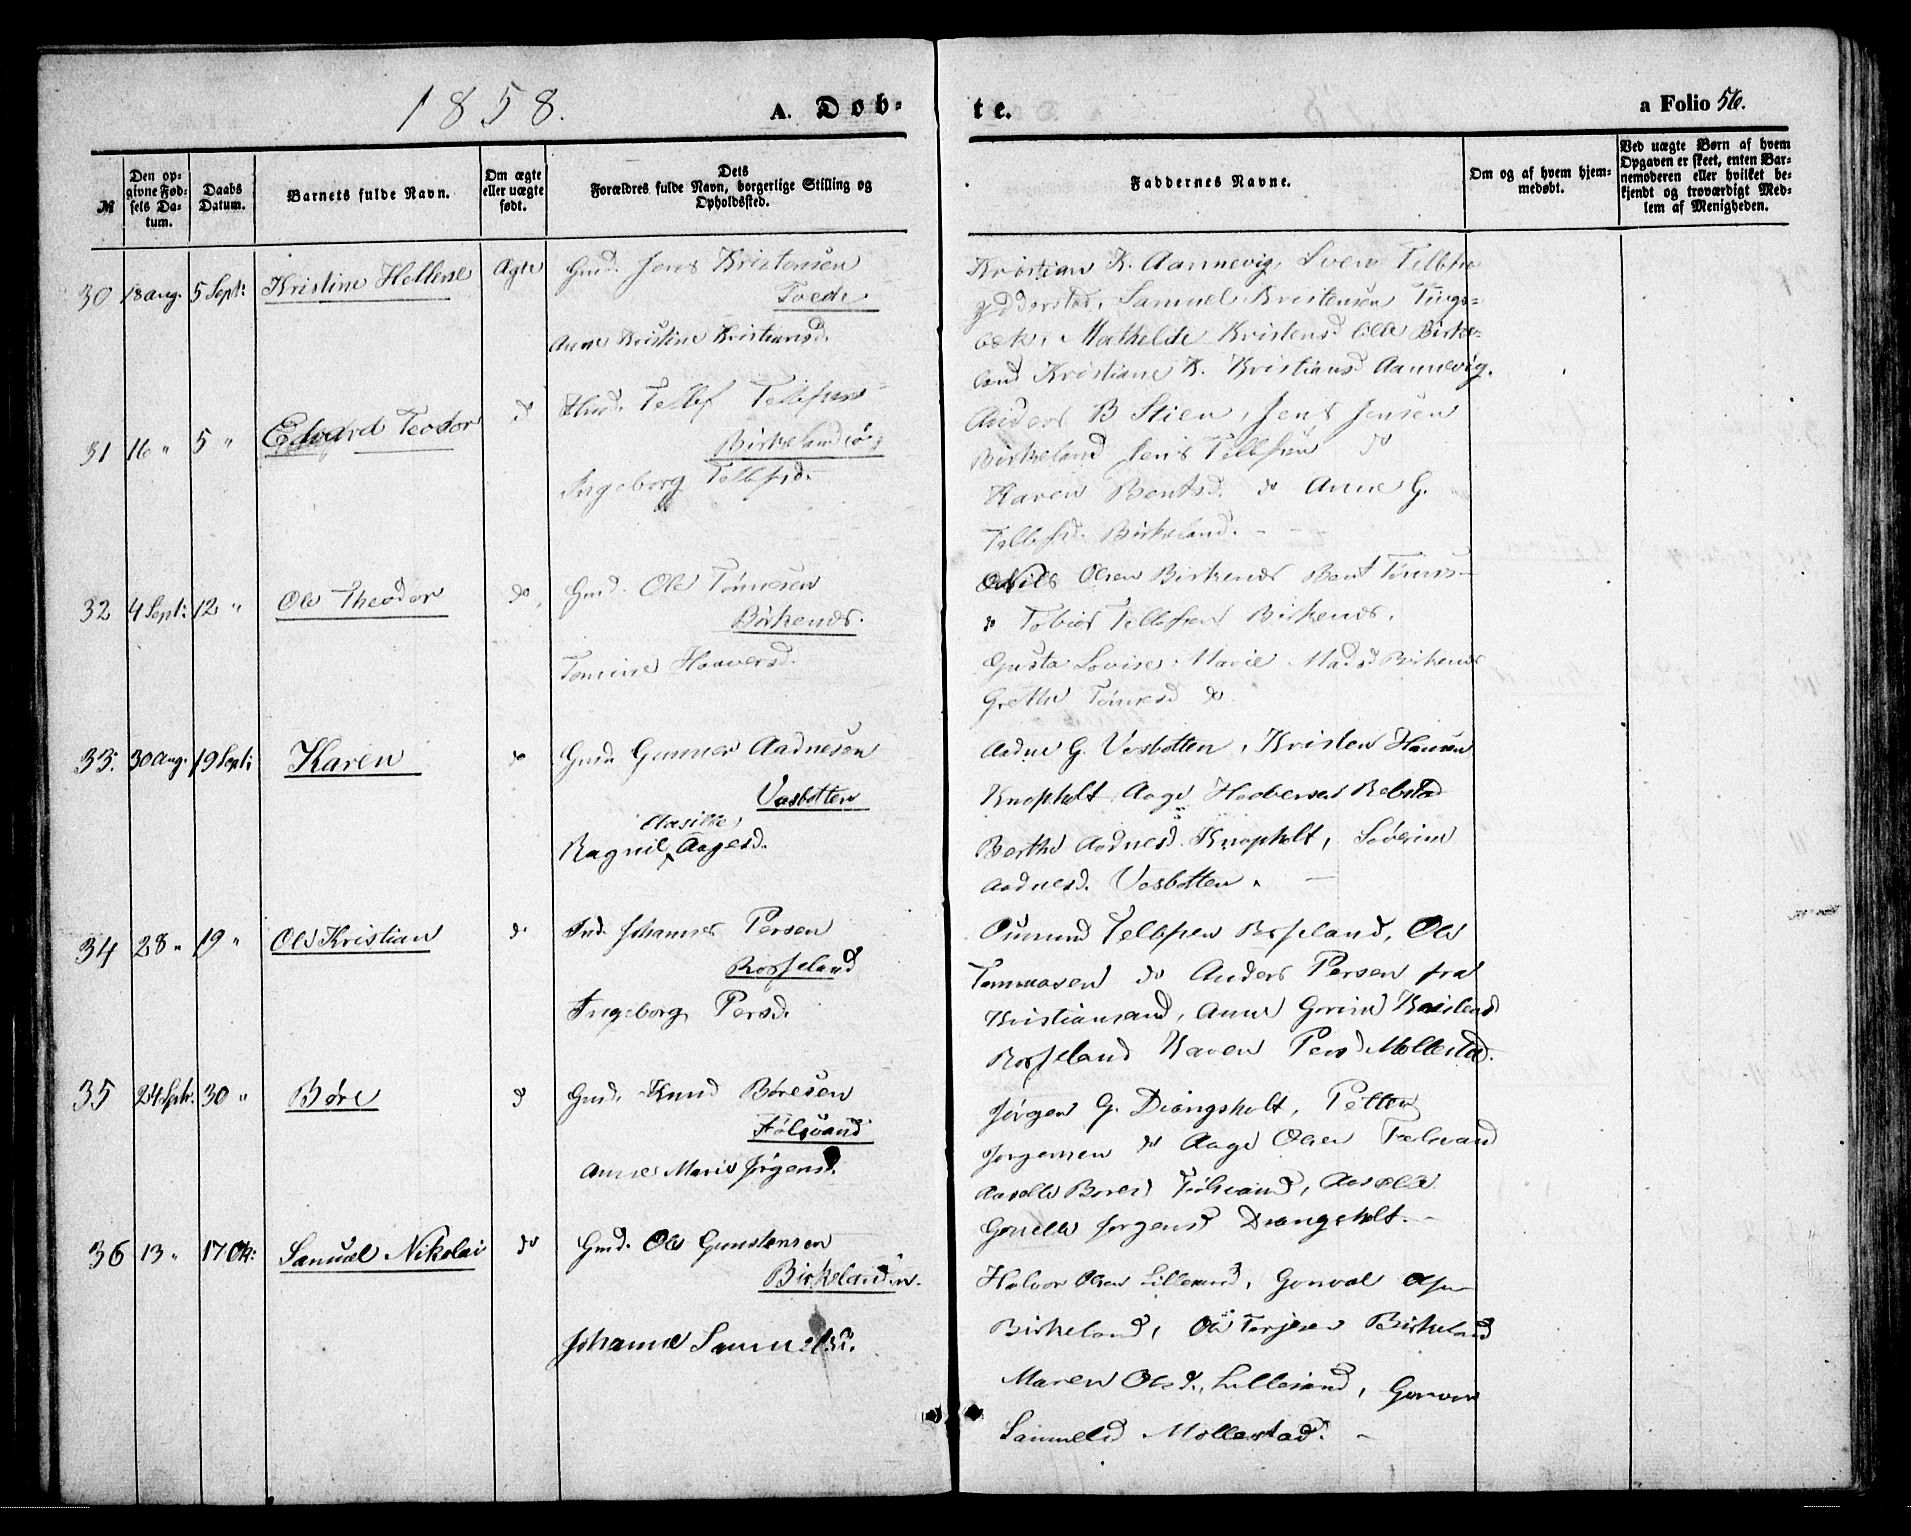 1858.
A. Dob-
te.
a Folio 56.
№
Den op-
givne Fød-
sels Da-
tum.
Daabs
Datum.
Barnets fulde Navn.
Om ægte
eller uægte
født.
Dets
Forældres fulde Navn, borgerlige Stilling og
Opholdssted.
Faddernes Navne.
Om og af hvem hjem-
medøbt.
Ved uægte Børn af hvem
Opgaven er skeet, enten Bar-
nemoderen eller hvilket be-
kjendt og troværdigt Med-
lem af Menigheden.
30 18 aug. 5 Sept: Kristine Hellene Ægte Gmd. Jens Kristensen
Tvede
Anne Kristine Kristiansd.
Kristian K. Aannevig, Sven Tellefse
Samuel Kristensen Tings-
bæk, Mathelde Kristensd Birke-
land Kristiane K. Kristiansd Aannevig.
31 16 " 5 " Edvard Teodor do Tellef Tellefsen
Birkeland
Ingeborg Tellefsd.
Anders B Stien, Jens Jensen
Birkeland Jens Tellefsen do
Karen Bentsd. do Anne G.
Tellefsd. Birkeland.
32 4 Sept: 12 " Ole Theodor do Gmd. Ole Tømesen
Birkenes.
Tomine Haaversd.
Nils Olsen Birkenes Bent Tømes-
do Tobias Tellefsen Birkenes.
Gusta Lovise Marie Madsd Birkenes
Grethe Tømesd do
33. 30 Aug. 19 Sept: Karen do Gmd Gunner Aadnesen
Vasbotten
Aasille
Ragnil Aagesd.
Aadne G. Vasbotten, Kristen Hansen
Knapholt Aage Rebstad
Berthe Aadnesd. Knapholt, Severine
Aadnesd. Vasbotten.
34 28 " 19 " Ole Kristian do Ind. Johannes Persen
Rosseland
Ingeborg Persd.
Gumund Tellefsen Rosseland, Ole
Tommasen do Anders Persen fra
Kristiansand, Anne Gurine
Rosseland Karen Persd Mollestad.
35 24 Sptr. 30 " Børe do Gmd. Knud Børesen
Følsvand
Anne Marie Jørgensd.
Jørgen G. Drangsholt, Petter
Jørgensen do Aage Olsen Følsvand
Aaselle Boresd Følsvand,
Gonelle Jørgensd Drangsholt.
36 13 " 17 Ok: Samuel Nikolai do Gmd. Ole Gunstensen
Birkeland
Johanne Samuelsd.
Halvor Olsen Lillesand, Gonval
Birkeland, Ole Terjesen Birkeland
Maren Olsd., Lillesand,
Samuelsd Mollestad.